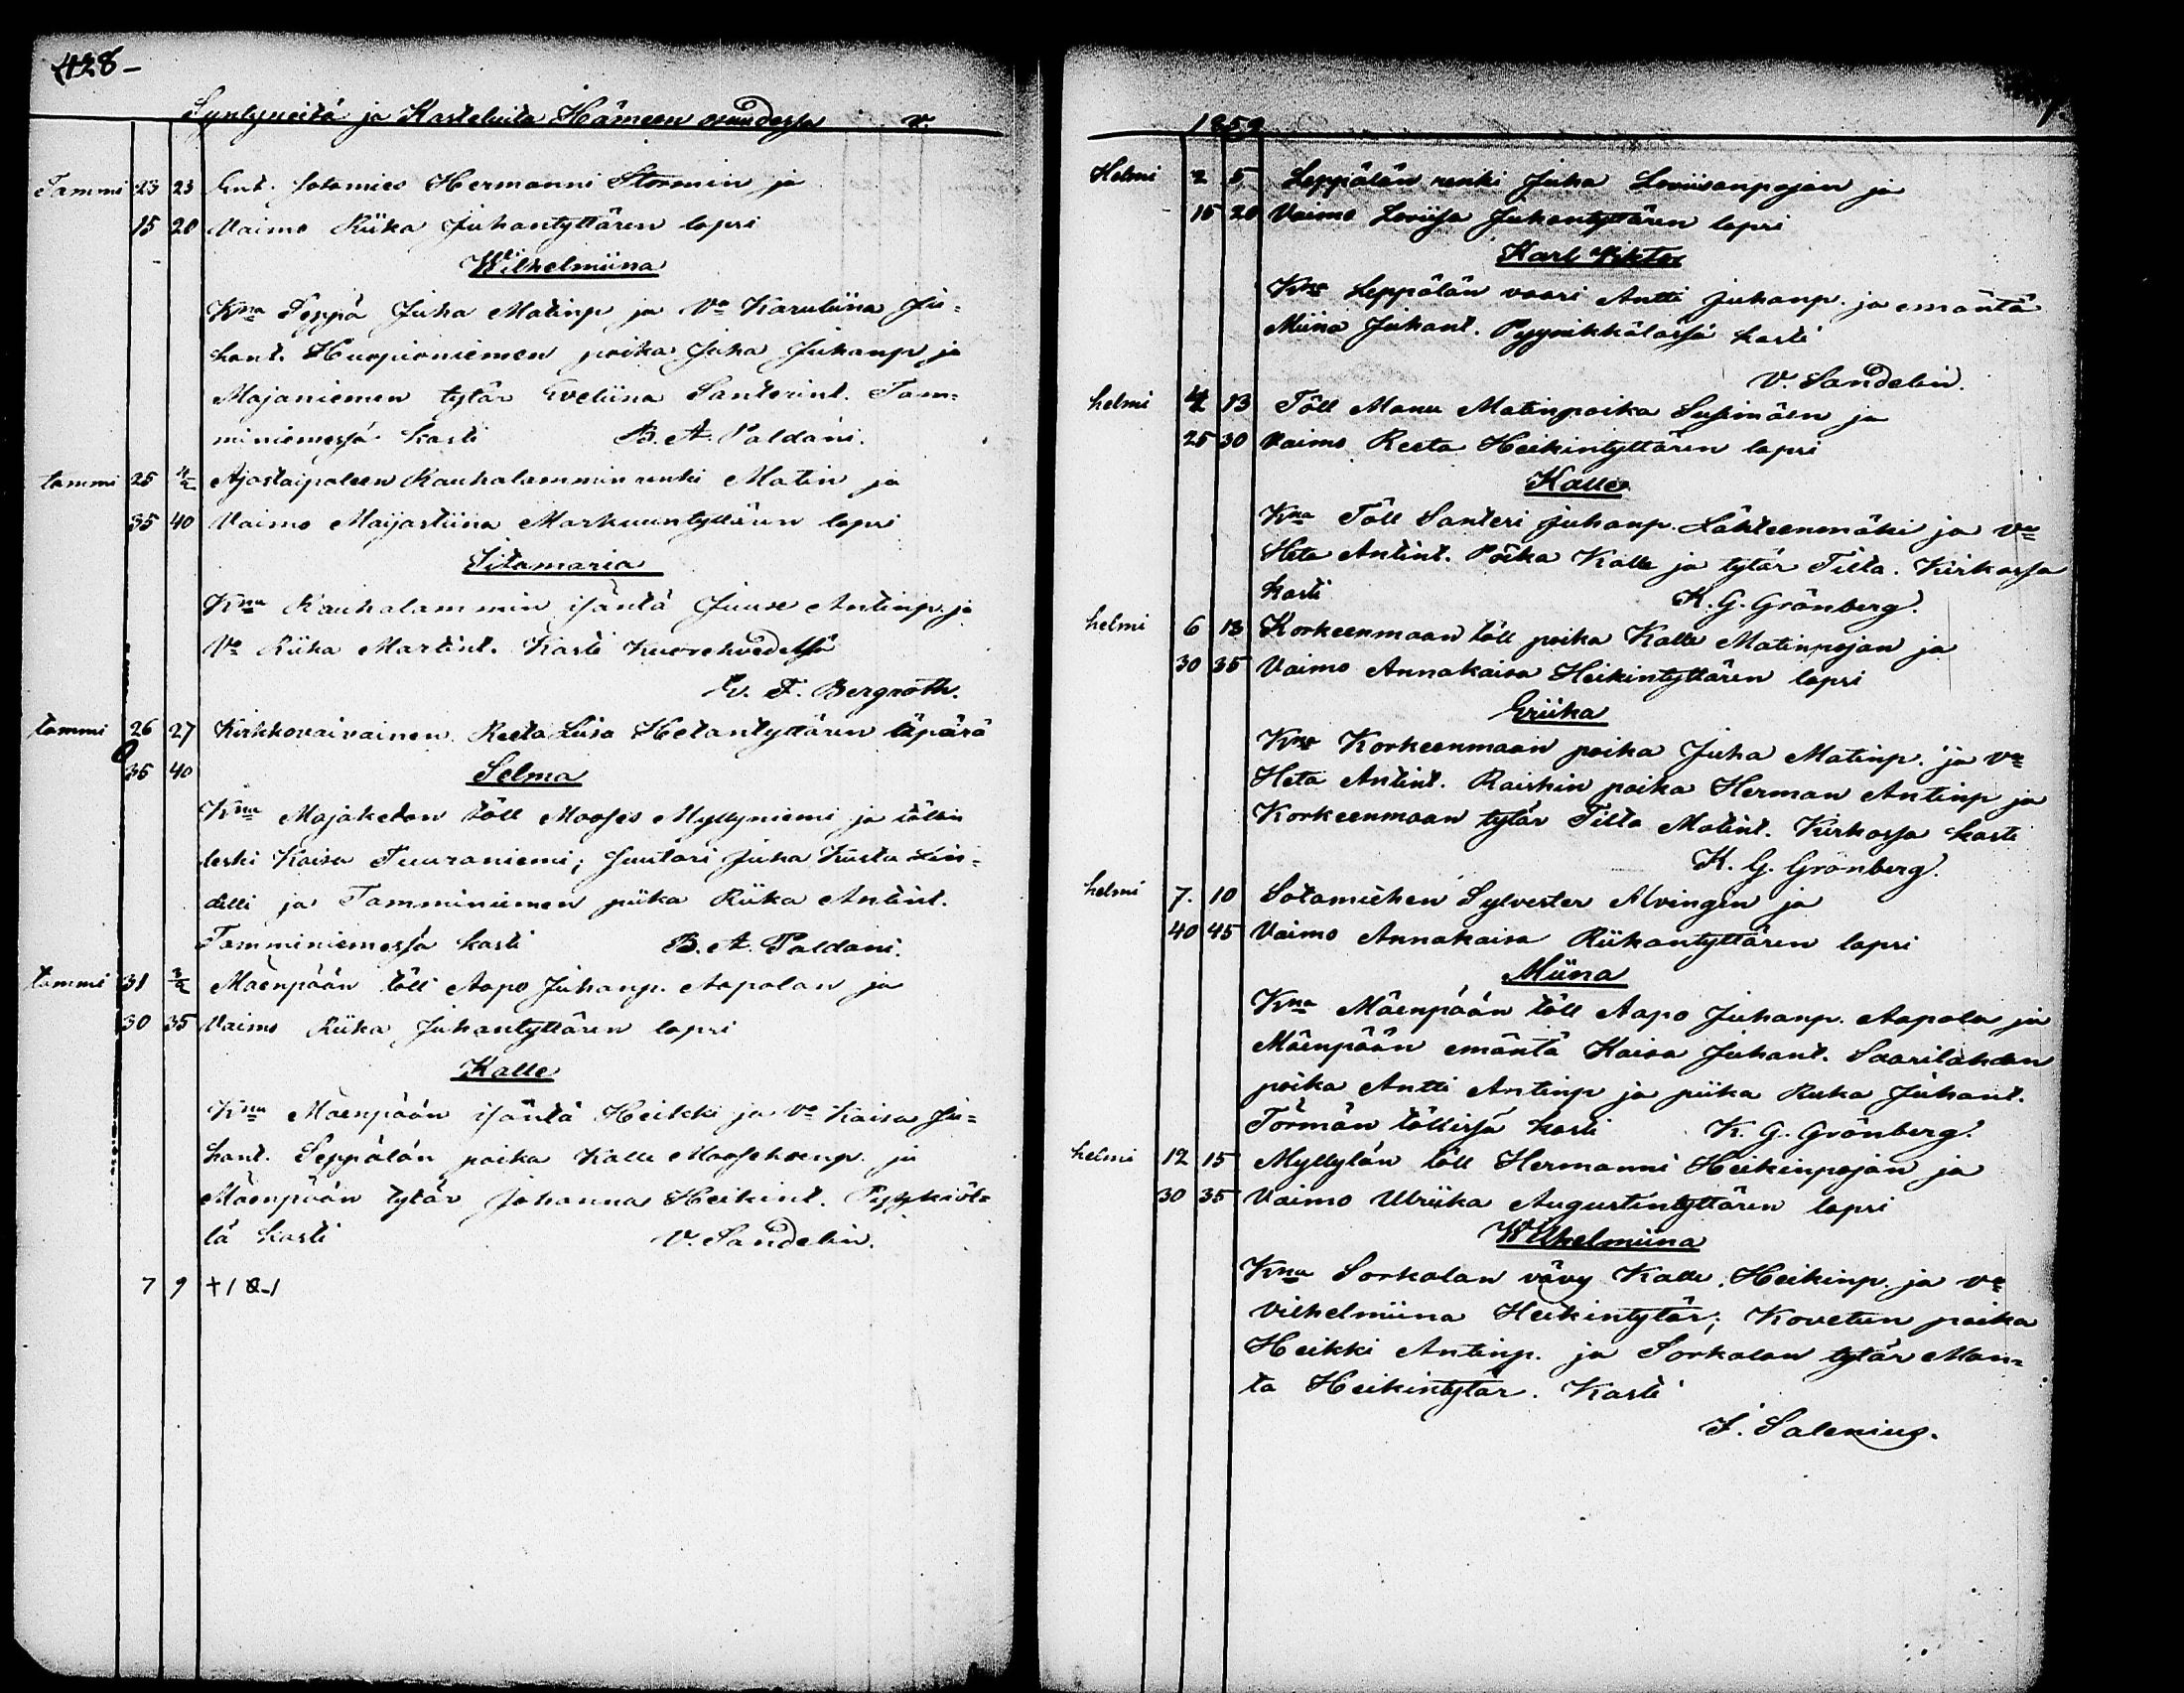 428-
Syntyneitä ja Kasteluita Hämeen osuudessa v.
Tammi 23 23 Ent. sotamies Hermanni Stormin ja
15 20 Vaimo Riika Juhantyttären lapsi
Wilhelmiina
Kna Seppä Juha Matinp ja Va Karuliina Ju-
hant. Huopioniemen poika Juha Juhanp ja
Majaniemen tytär Eveliina Santerint. Tam-
miniemessä kasti B. A. Paldani.
tammi 25 4/2 Ajostaipaleen Kauhalammin renki Matin ja
35 40 Vaimo Maijastiina Markuuntyttären lapsi
Iitamaria
Kna Kauhalammin isäntä Juuse Antinp. ja
Va Riika Martint. Kasti Kuorehvedellä
E. F. Bergroth.
tammi 26 27 Kirkkovaivainen Reeta Liisa Hetantyttären läpärä
35 40 Selma
Kna Majakedon töll Mooses Myllyniemi ja töllin
leski Kaisa Tuuraniemi; Suutari Juha Kusta Lin-
delli ja Tamminiemen piika Riika Antint.
Tamminiemessä kasti B. A. Paldani.
tammi 31 3/2 Mäenpään töll Aapo Juhanp. Aapolan ja
30 35 Vaimo Riika Juhantyttären lapsi
Kalle
Kna Mäenpään isäntä Heikki ja Va Kaisa Ju-
hant. Seppälän poika Kalle Mooseksenp. ja
Mäenpään tytär Johanna Heikint.
lä kasti V. Sandelin.
7 9 +1
1859
1.
Helmi 2 5 Leppälän renki Juha Loviisanpojan ja
15 20 Vaimo Loviisa Juhantyttären lapsi
Karl Viktor
Kna Leppälän vaari Antti Juhanp. ja emäntä
Miina Juhant. Pyynikkälässä kasti
V. Sandelin.
helmi 4 13 Töll Manu Matinpoika Susimäen ja
25 30 Vaimo Reeta Heikintyttären lapsi
Kalle
Kna Töll Santeri Juhanp. Lähteenmäki ja va
Heta Antint. Poika Kalle ja tytär Tilta. Kirkossa
kasti K. G. Grönberg.
helmi 6 13 Korkeenmaan töll poika Kalle Matinpojan ja
30 35 Vaimo Annakaisa Heikintyttären lapsi
Eriika
Kna Korkeenmaan poika Juha Matinp. ja va
Heta Antint. Raishin poika Herman Antinp ja
Korkeenmaan tytär Tilta Matint. Kirkossa kasti
K. G. Grönberg.
helmi 7. 10 Sotamiehen Sylvester Alvingin ja
40 45 Vaimo Annakaisa Riikantyttären lapsi
Miina
Kna Mäenpään töll Aapo Juhanp. Aapola ja
Mäenpään emäntä Kaisa Juhant. Saarilahden
poika Antti Antinp ja piika Riika Juhant.
Törmän töllissä kasti K. G. Grönberg.
helmi 12 15 Myllylän töll Hermanni Heikinpojan ja
30 35 Vaimo Ulriika Augustintyttären lapsi
Wilhelmiina
Kna Sorkolan vävy Kalle Heikinp. ja va
Vilhelmiina Heikintytär; Kovetun poika
Heikki Antinp. ja Sorkolan tytär Man-
ta Heikintytär. Kasti
F. Salenius.